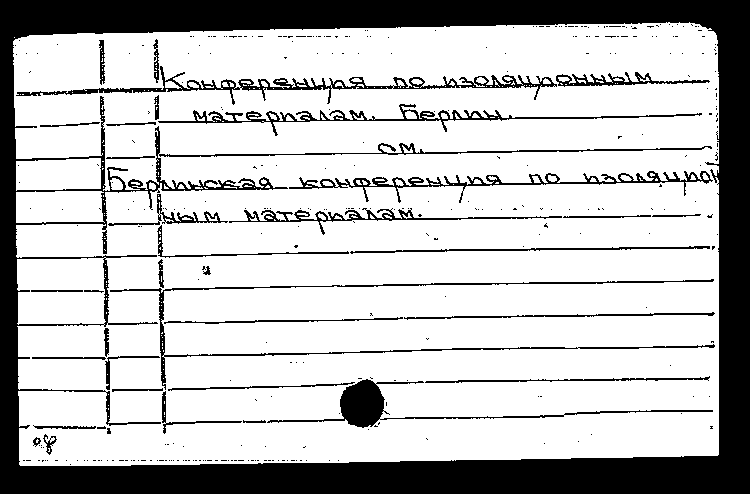 Конференция по изоляционным
материалам. Берлин.
см.
Берлинская конференция по изоляцион
ным материалам.